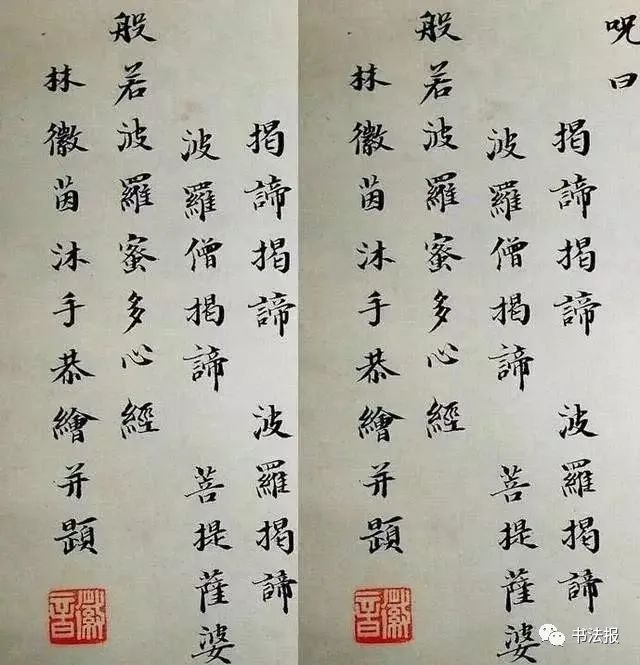 呪曰
揭諦揭諦 波羅揭諦
波羅僧揭諦 菩提薩婆
般若波羅蜜多心經
林徽茵沐手恭繪并題
徽音
揭諦揭諦 波羅揭諦
波羅僧揭諦 菩提薩婆
般若波羅蜜多心經
林徽茵沐手恭繪并題
徽音
书法报